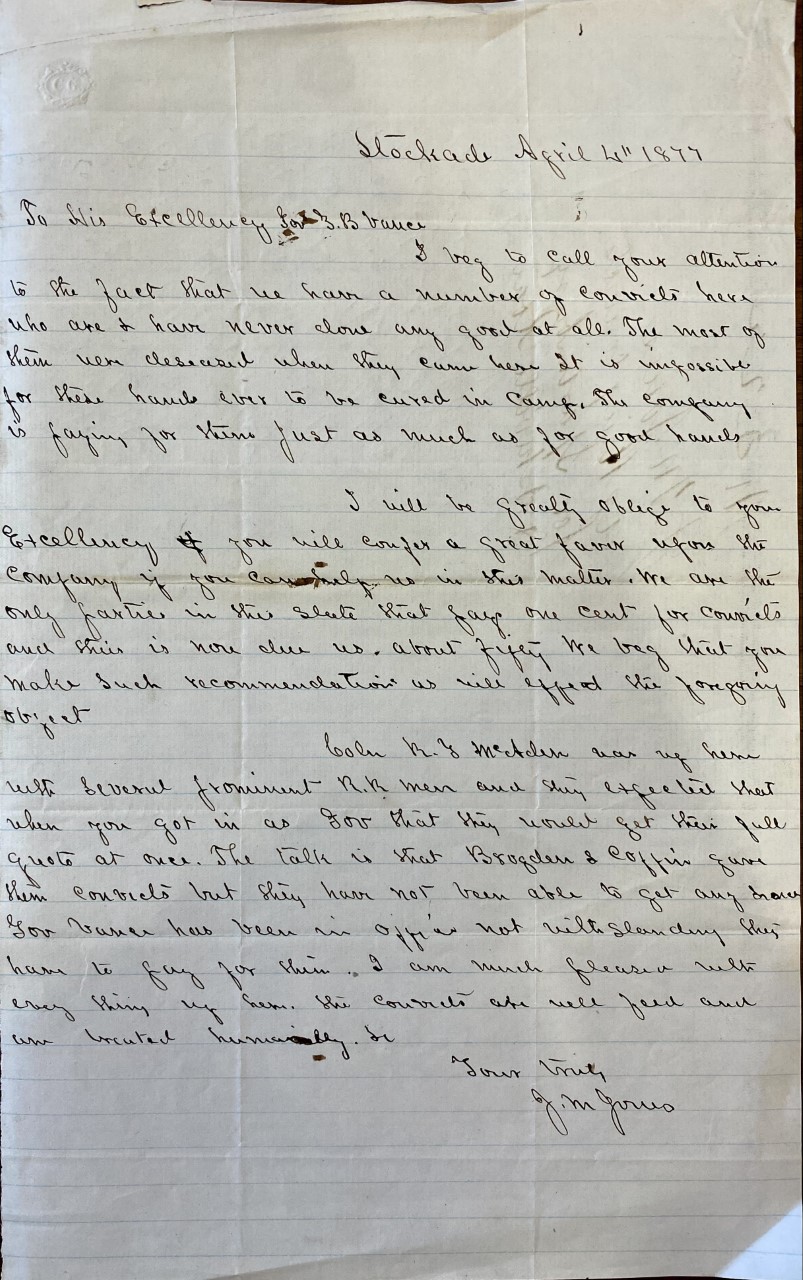 Stockade April 4" 1877
To His Excellency Gov Z.B Vance
I beg to call your attention
to the fact that we have a number of convicts here
who are & have never done any good at all. The most of
them were deseased when they came here It is impossible
for these hands ever to be cured in camp. The company
is paying for them just as much as for good hands
I will be greatly oblige to your
Excellency if you will confer a great favor upon the
Company if you can help us in this matter. We are the
only parties in this state that pays one cent for convicts
and there is now due us. about fifty We beg that you
make such recommendation as will effect the foregoing
object
Coln R. Y McAden was up here
with several prominent R.R men and they expected that
when you got in as Gov that they would get their full
quoto at once. The talk is that Brogden & Coffin gave
them convicts but they have not been able to get any since
Gov Vance has been in office not withstanding they
have to pay for them. I am much pleased with
every thing up here. The convicts are well feed and
are treated humanely. &c
Your truly
J. M Jones